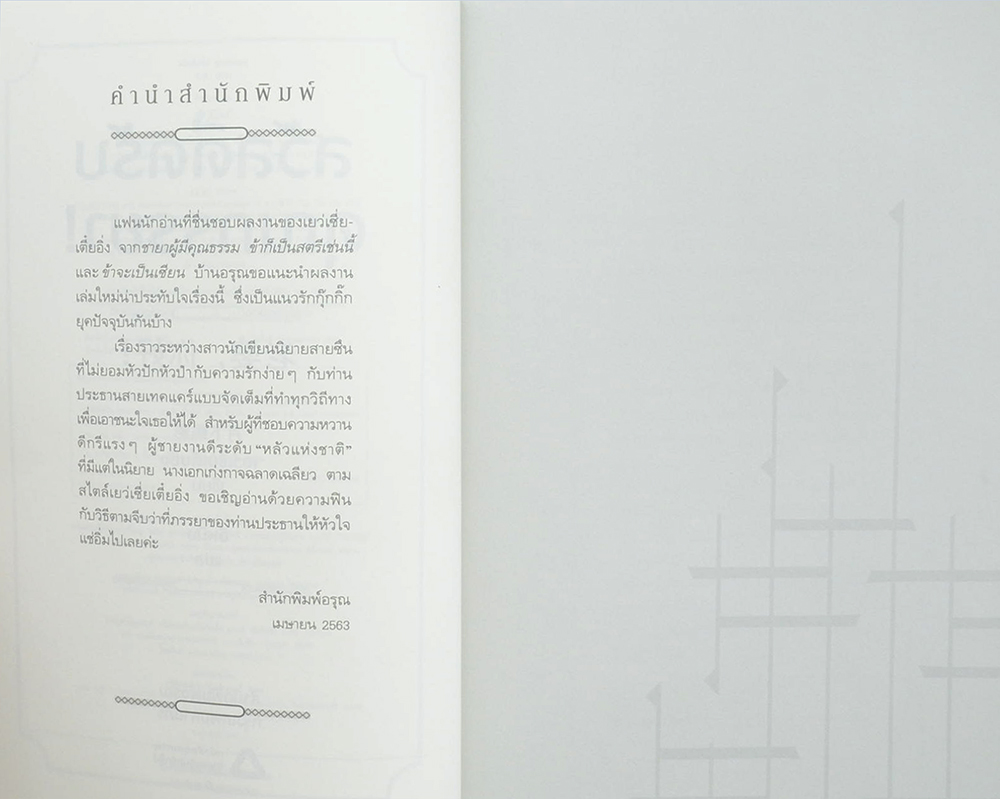 คำนำสำนักพิมพ์
แฟนนักอ่านที่ชื่นชอบผลงานของเยว่เซี่ย-
เตี๋ยอิ่ง จากชายาผู้มีคุณธรรม ข้าก็เป็นสตรีเช่นนี้
และ ข้าจะเป็นเซียน บ้านอรุณขอแนะนำผลงาน
เล่มใหม่น่าประทับใจเรื่องนี้ ซึ่งเป็นแนวรักกุ๊กกิ๊ก
ยุคปัจจุบันกันบ้าง
เรื่องราวระหว่างสาวนักเขียนนิยายสายซึน
ที่ไม่ยอมหัวปักหัวปำกับความรักง่ายๆ กับท่าน
ประธานสายเทคแคร์แบบจัดเต็มที่ทำทุกวิถีทาง
เพื่อเอาชนะใจเธอให้ได้ สำหรับผู้ที่ชอบความหวาน
ดีกรีแรงๆ ผู้ชายงานดีระดับ “หลัวแห่งชาติ”
ที่มีแต่ในนิยาย นางเอกเก่งกาจฉลาดเฉลียว ตาม
สไตล์เยว่เซี่ยเตี๋ยอิ่ง ขอเชิญอ่านด้วยความฟิน
กับวิธีตามจีบว่าที่ภรรยาของท่านประธานให้หัวใจ
แช่อิ่มไปเลยค่ะ
สำนักพิมพ์อรุณ
เมษายน 2563